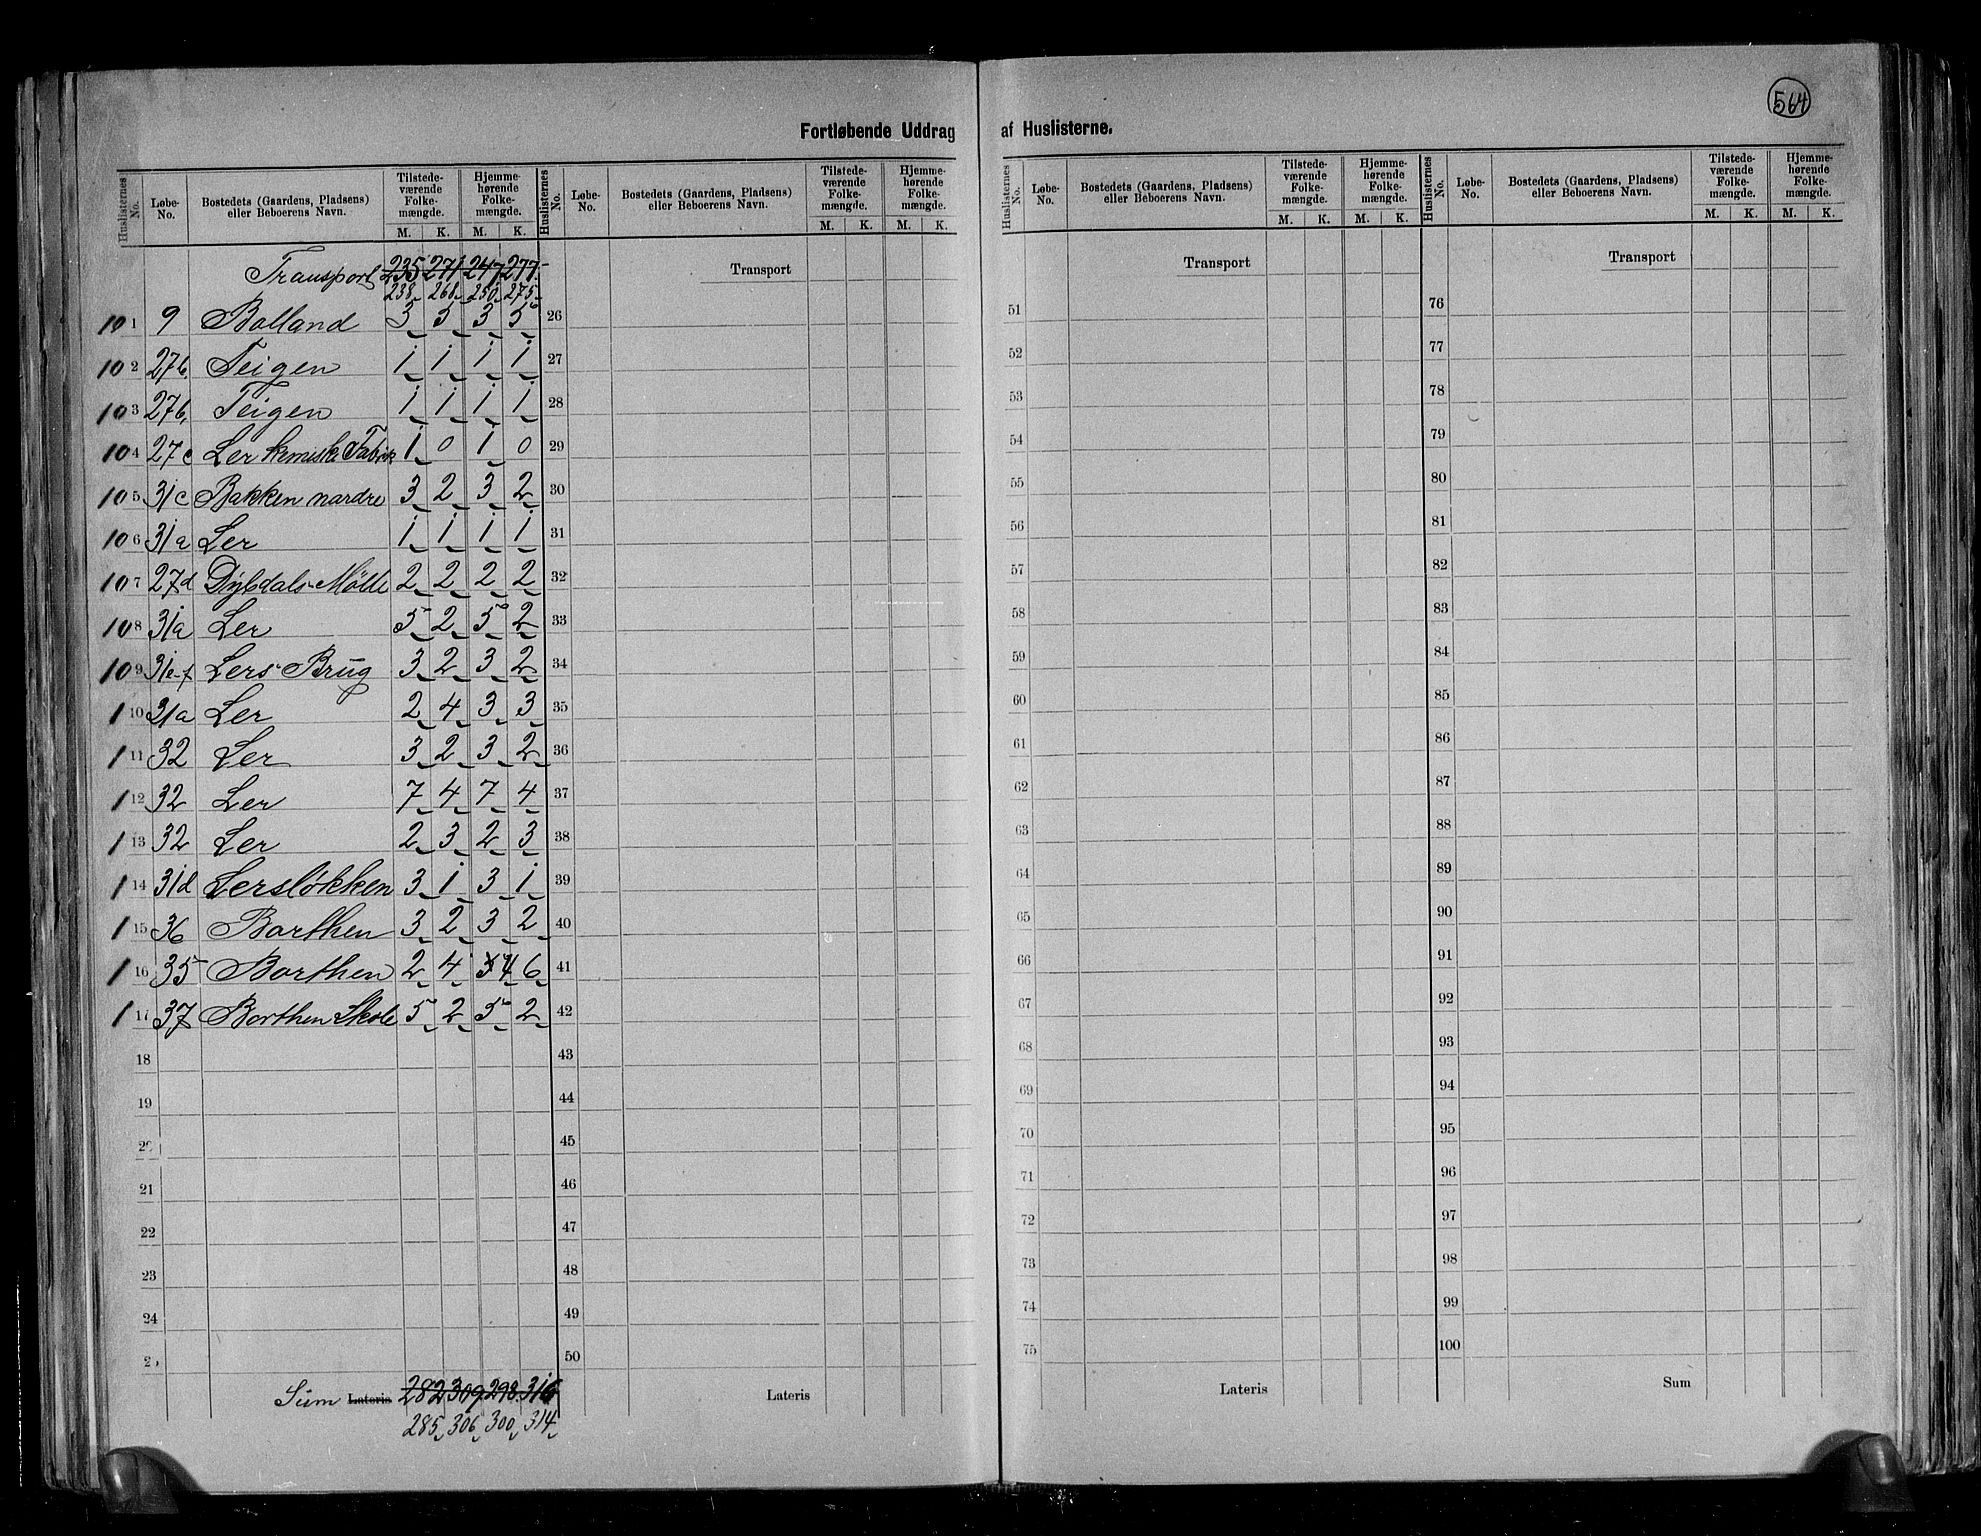 564
Fortløbende Uddrag af Huslisterne.
Huslisternes No. Løbe-No. Bostedets (Gaardens, Pladsens) eller Beboerens Navn. Tilstedeværende Folkemængde. M. K. Hjemmehørende Folkemængde. M. K.
Transport 235 271 247 277
238 268 250 275
10 1 9 Bolland 3 5 3 5
10 2 27b. Teigen 1 1 1 1
10 3 27b, Teigen 1 1 1 1
10 4 27c Ler kemiske Fabrik 1 0 1 0
10 5 31c Bakken nardre 3 2 3 2
10 6 31a Ler 1 1 1 1
10 7 27d Dybdals Mölle 2 2 2 2
10 8 31a Ler 5 2 5 2
10 9 31e-f Lers Brug 3 2 3 2
1 10 31a Ler 2 4 3 3
1 11 32 Ler 3 2 3 2
1 12 32 Ler 7 4 7 4
1 13 32 Ler 2 3 2 3
1 14 31d Lersløkken 3 1 3 1
1 15 36 Borthen 3 2 3 2
1 16 35 Borthen 2 4 4 6
1 17 37 Borthen Skole 5 2 5 2
18
19
20
21
22
23
24
25
Sum Lateris 282 309 298 316
285 306 300 314
Huslisternes No. Løbe-No. Bostedets (Gaardens, Pladsens) eller Beboerens Navn. Tilstedeværende Folkemængde. M. K. Hjemmehørende Folkemængde. M. K.
Transport
26
27
28
29
30
31
32
33
34
35
36
37
38
39
40
41
42
43
44
45
46
47
48
49
50
Lateris
Huslisternes No. Løbe-No. Bostedets (Gaardens, Pladsens) eller Beboerens Navn. Tilstedeværende Folkemængde. M. K. Hjemmehørende Folkemængde. M. K.
Transport
51
52
53
54
55
56
57
58
59
60
61
62
63
64
65
66
67
68
69
70
71
72
73
74
75
Lateris
Huslisternes No. Løbe-No. Bostedets (Gaardens, Pladsens) eller Beboerens Navn. Tilstedeværende Folkemængde. M. K. Hjemmehørende Folkemængde. M. K.
Transport
76
77
78
79
80
81
82
83
84
85
86
87
88
89
90
91
92
93
94
95
96
97
98
99
100
Sum